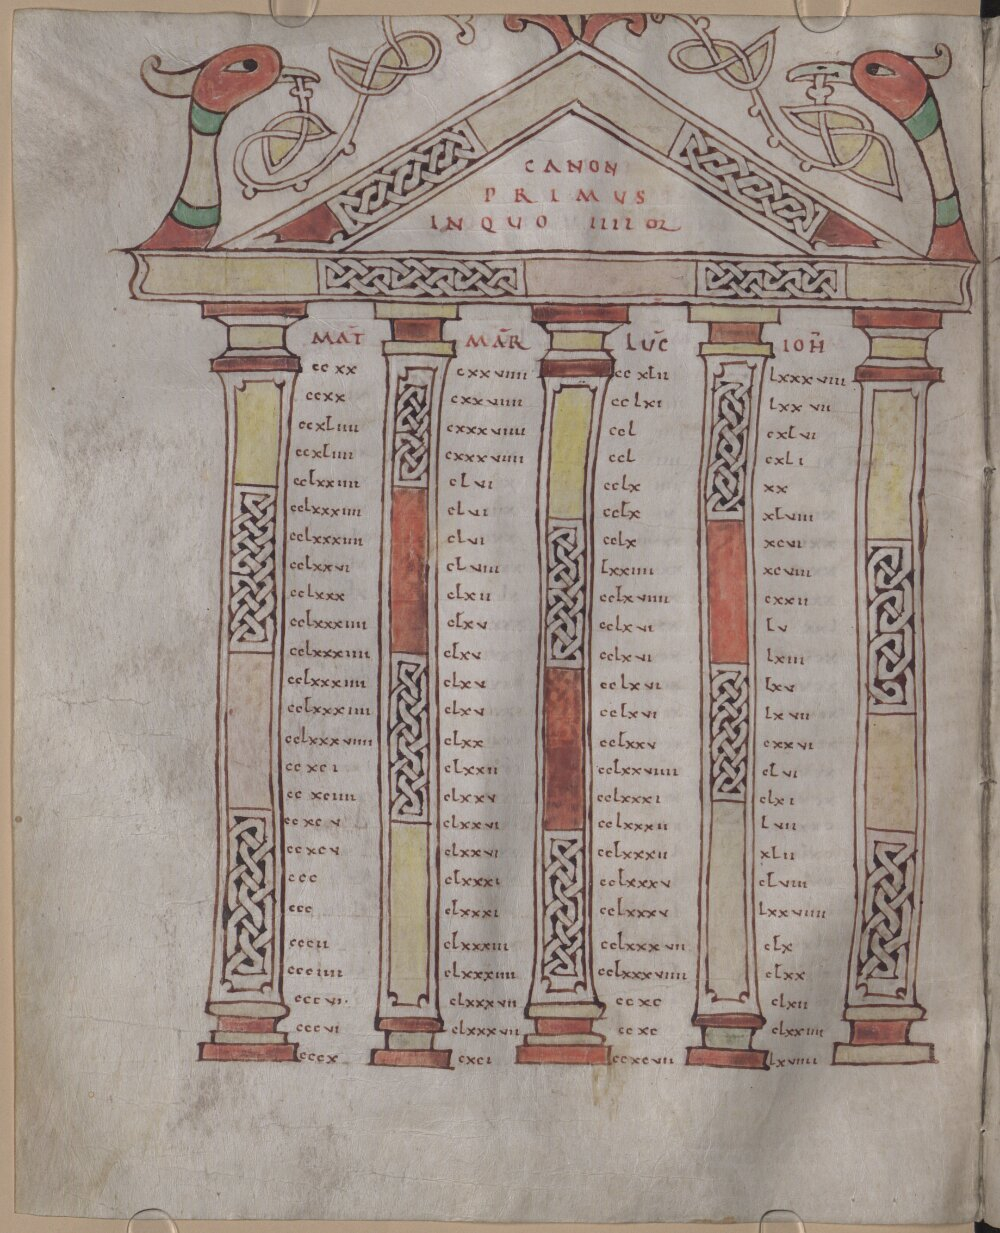 CANON
PRIMUS
IN QUO IIII OR
MAT MAR LUC IOH
ccxx cxxviiii ccxLii Lxxxviii
ccxx cxxviiii ccLxi Lxxvii
ccxLiiii cxxxviiii ccL cxLvi
ccxLiiii cxxxviiii ccL cxLi
ccLxxiiii cLvi ccLx xx
ccLxxxiiii cLvi ccLx xLviii
ccLxxxiiii cLvi ccLx xcvi
ccLxxvi cLviii Lxxiiii xcviii
ccLxxx cLxii ccLxviiii cxxii
ccLxxxiiii cLxv ccLxvi Lv
ccLxxxiiii cLxv ccLxvi Lxiii
ccLxxxiiii cLxv ccLxvi Lxv
ccLxxxiiii cLxv ccLxvi Lxvii
ccLxxxviiii cLxx ccLxxv cxxvi
ccxci cLxxii ccLxxviiii cLvi
ccxciiii cLxxv ccLxxxi cLxi
ccxcv cLxxvi ccLxxxii Lvii
ccxcv cLxxvi ccLxxxii xLii
ccc cLxxxi ccLxxxv cLviii
ccc cLxxxi ccLxxxv Lxxviiii
cccii cLxxxiii ccLxxxvii cLx
ccciiii cLxxxiiii ccLxxxviiii cLxx
cccvi. cLxxxvii ccxc cLxii
cccvi cLxxxvii ccxc cLxxiiii
cccx cxci ccxcvii Lxviiii